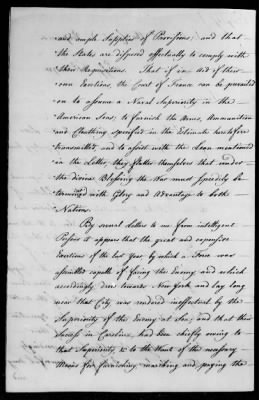 and ample Supplies of Provisions; and that
the States are disposed effectually to comply with
their Requisitions. That if in aid of their
own Exertions, the Court of France can be prevailed
on to assume a Naval Superiority in the
American Seas; to furnish the Arms, Ammunition
and Cloathing specified in the Estimate heretofore
transmitted, and to assist with the Loan mentioned
in the Letter; they flatter themselves that under
the Divine Blessing the War must speedily be
terminated with Glory and Advantage to both
Nations.
By several Letters to me from intelligent
Persons it appears that the great and expensive
Exertions of the last Year by which a Force was
assembled capable of facing the Enemy and which
accordingly drew towards New York and lay long
near that City was rendered ineffectual by the
Superiority of the Enemy at Sea; and that their
Success in Carolina, had been chiefly owing to
that Superiority, & to the Want of the necessary
Means for furnishing, marching and paying the